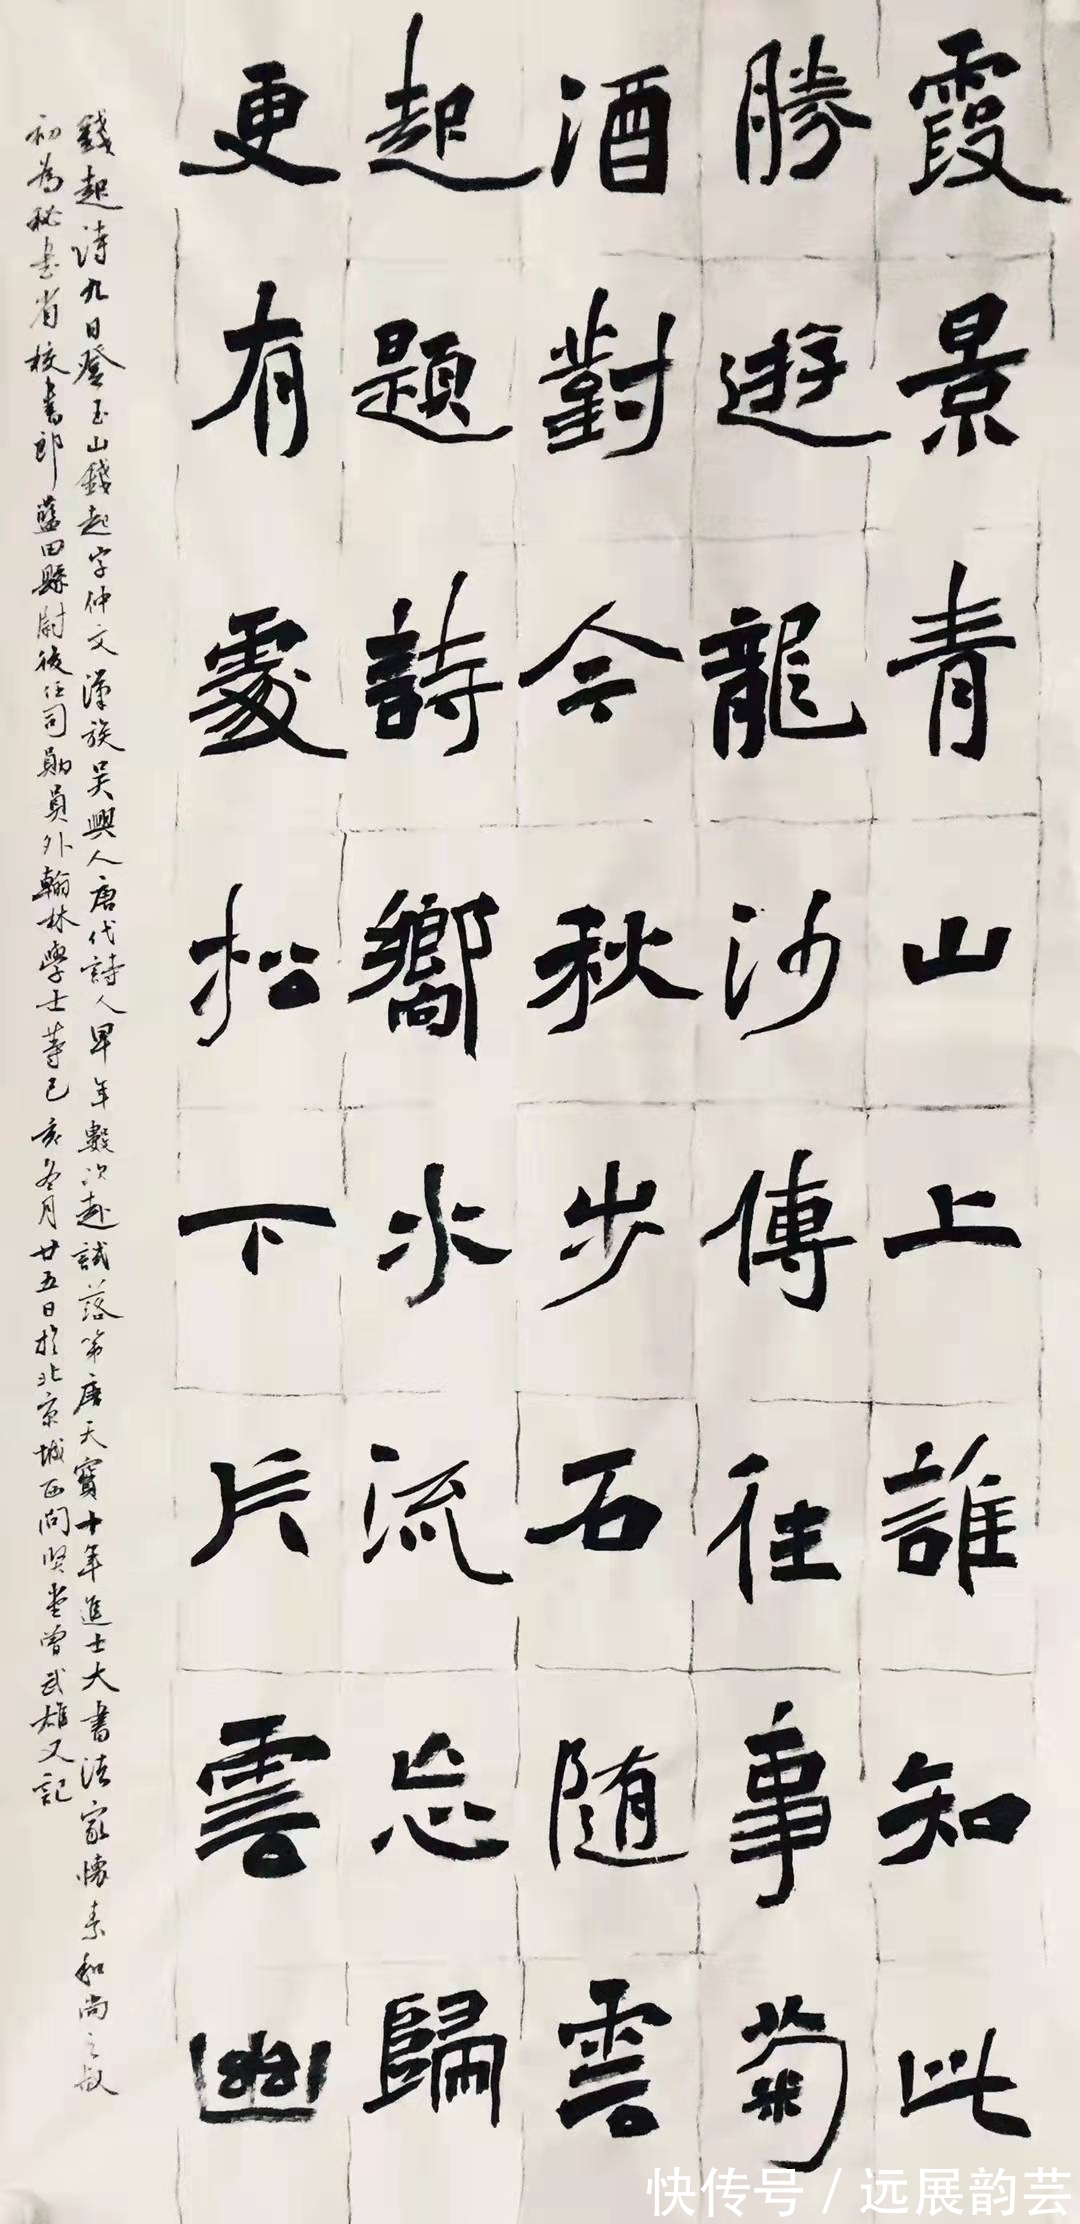 霞景青山上誰知此
勝遊龍沙傳往事菊
酒對今秋步石随雲
起題詩嚮水流忘歸
更有處松下片雲幽
錢起詩九日登玉山錢起字仲文漢族吴興人唐代詩人早年數次赴試落第唐天寶十年進士大書法家懷素和尚之叔
初為秘書省校書郎藍田縣尉後任司勛員外翰林學士等己亥冬月廿五日於北京城西問賢堂曾武雄又記
快传号 / 远展韵芸